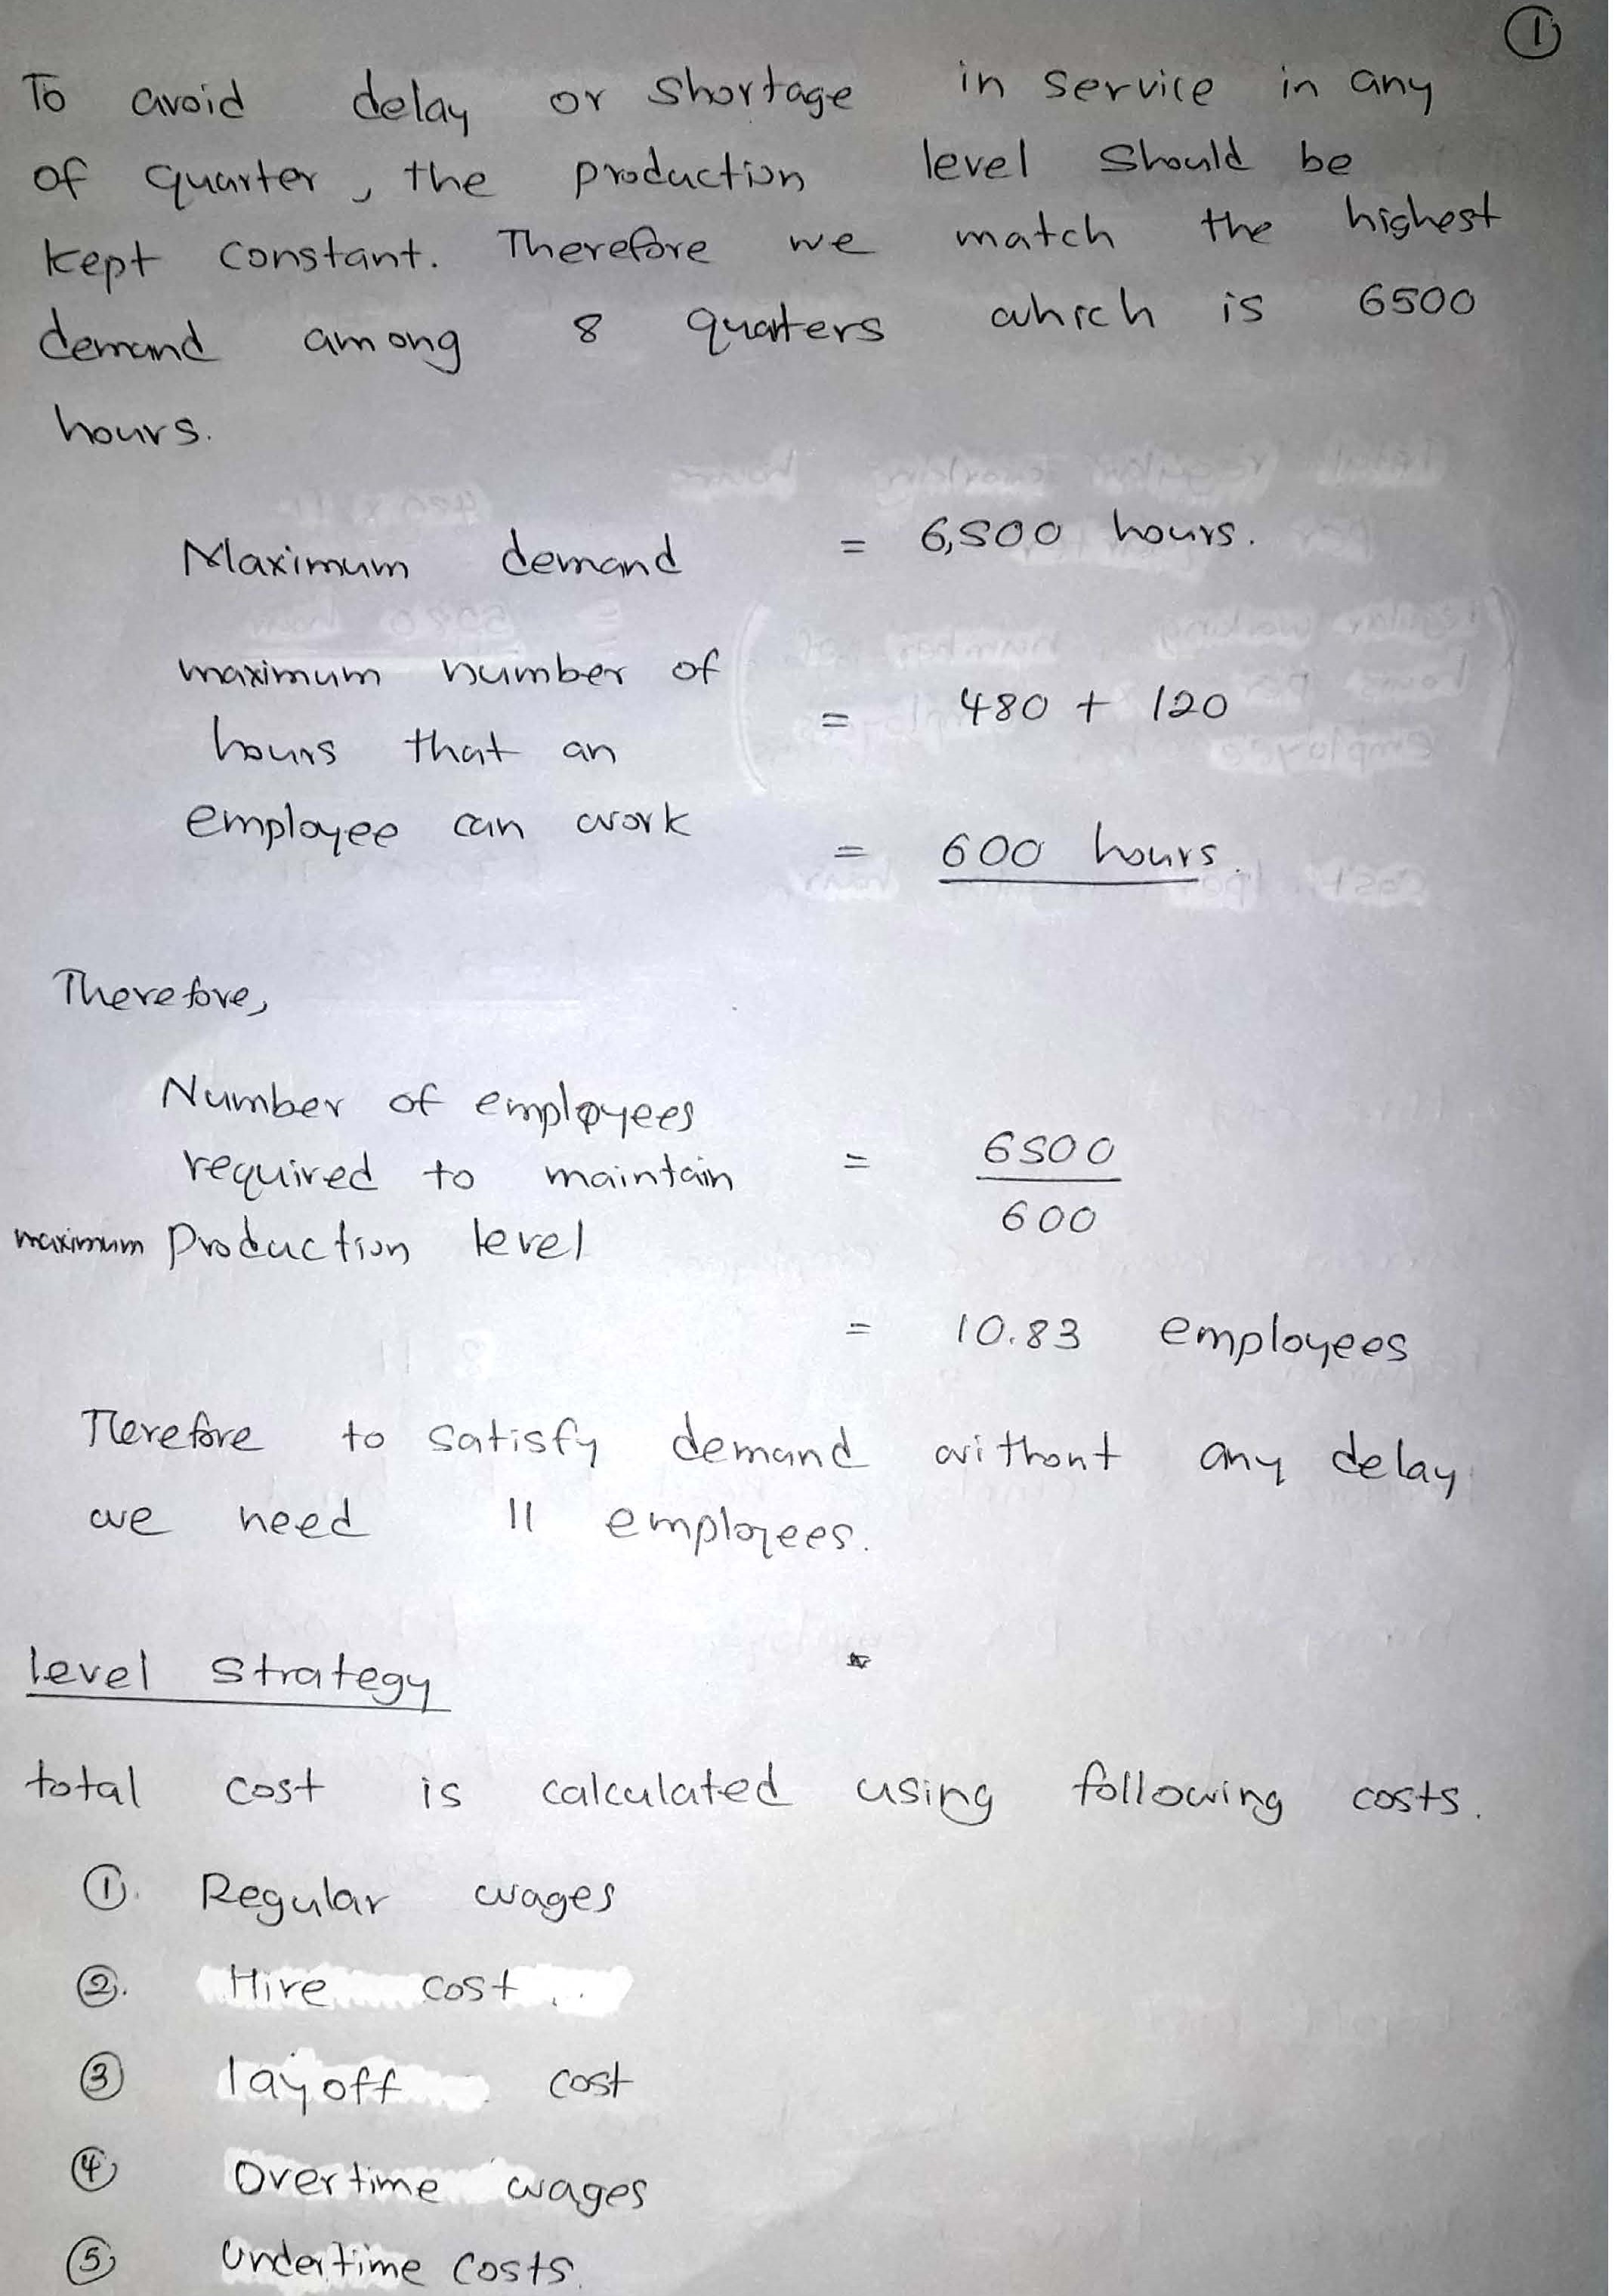 ①
To avoid delay or shortage in service in any
of quarter, the production level should be
kept constant. Therefore we match the highest
demand among 8 quarters which is 6500
hours.
Maximum demand = 6,500 hours.
maximum number of
hours that an = 480 + 120
employee can work = 600 hours.
Therefore,
Number of employees
required to maintain = 6500
maximum production level 600
= 10.83 employees
Therefore to satisfy demand without any delay
we need 11 employees.
level strategy
total cost is calculated using following costs.
①. Regular wages
②. Hire cost
③ layoff cost
④ Overtime wages
⑤ Undertime costs.